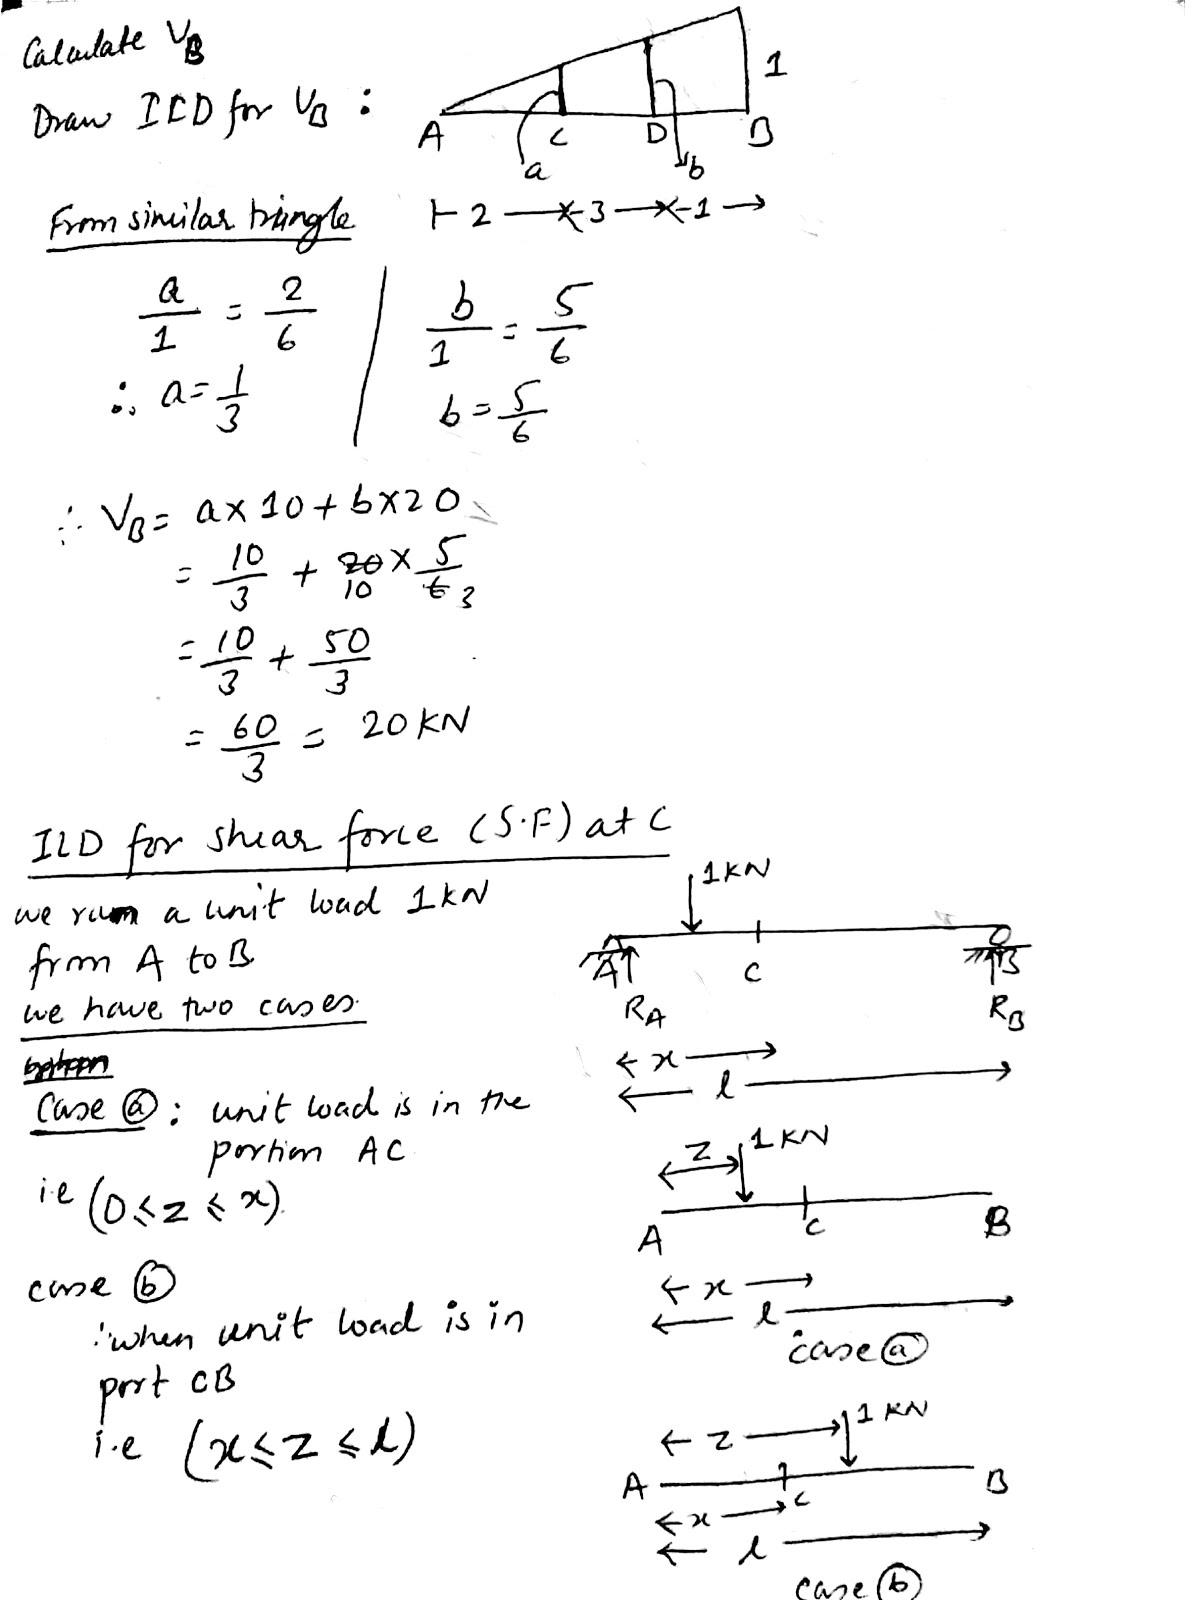 Calculate V_B
Draw ILD for V_B :
1
A C D B
a b
2 3 1
From similar triangle
a/1 = 2/6 | b/1 = 5/6
∴ a = 1/3 | b = 5/6
∴ V_B = a × 10 + b × 20
= 10/3 + 20 10 × 5/6 3
= 10/3 + 50/3
= 60/3 = 20 KN
ILD for shear force (S.F) at C
we run a unit load 1KN
from A to B
we have two cases.
1KN
A C B
R_A R_B
x
l
Case ⓐ : unit load is in the
portion AC
i.e (0 ≤ z ≤ x).
z 1KN
A C B
x
l
case ⓐ
case ⓑ
: when unit load is in
port CB
i.e (x ≤ z ≤ l)
z 1KN
A C B
x
l
case ⓑ